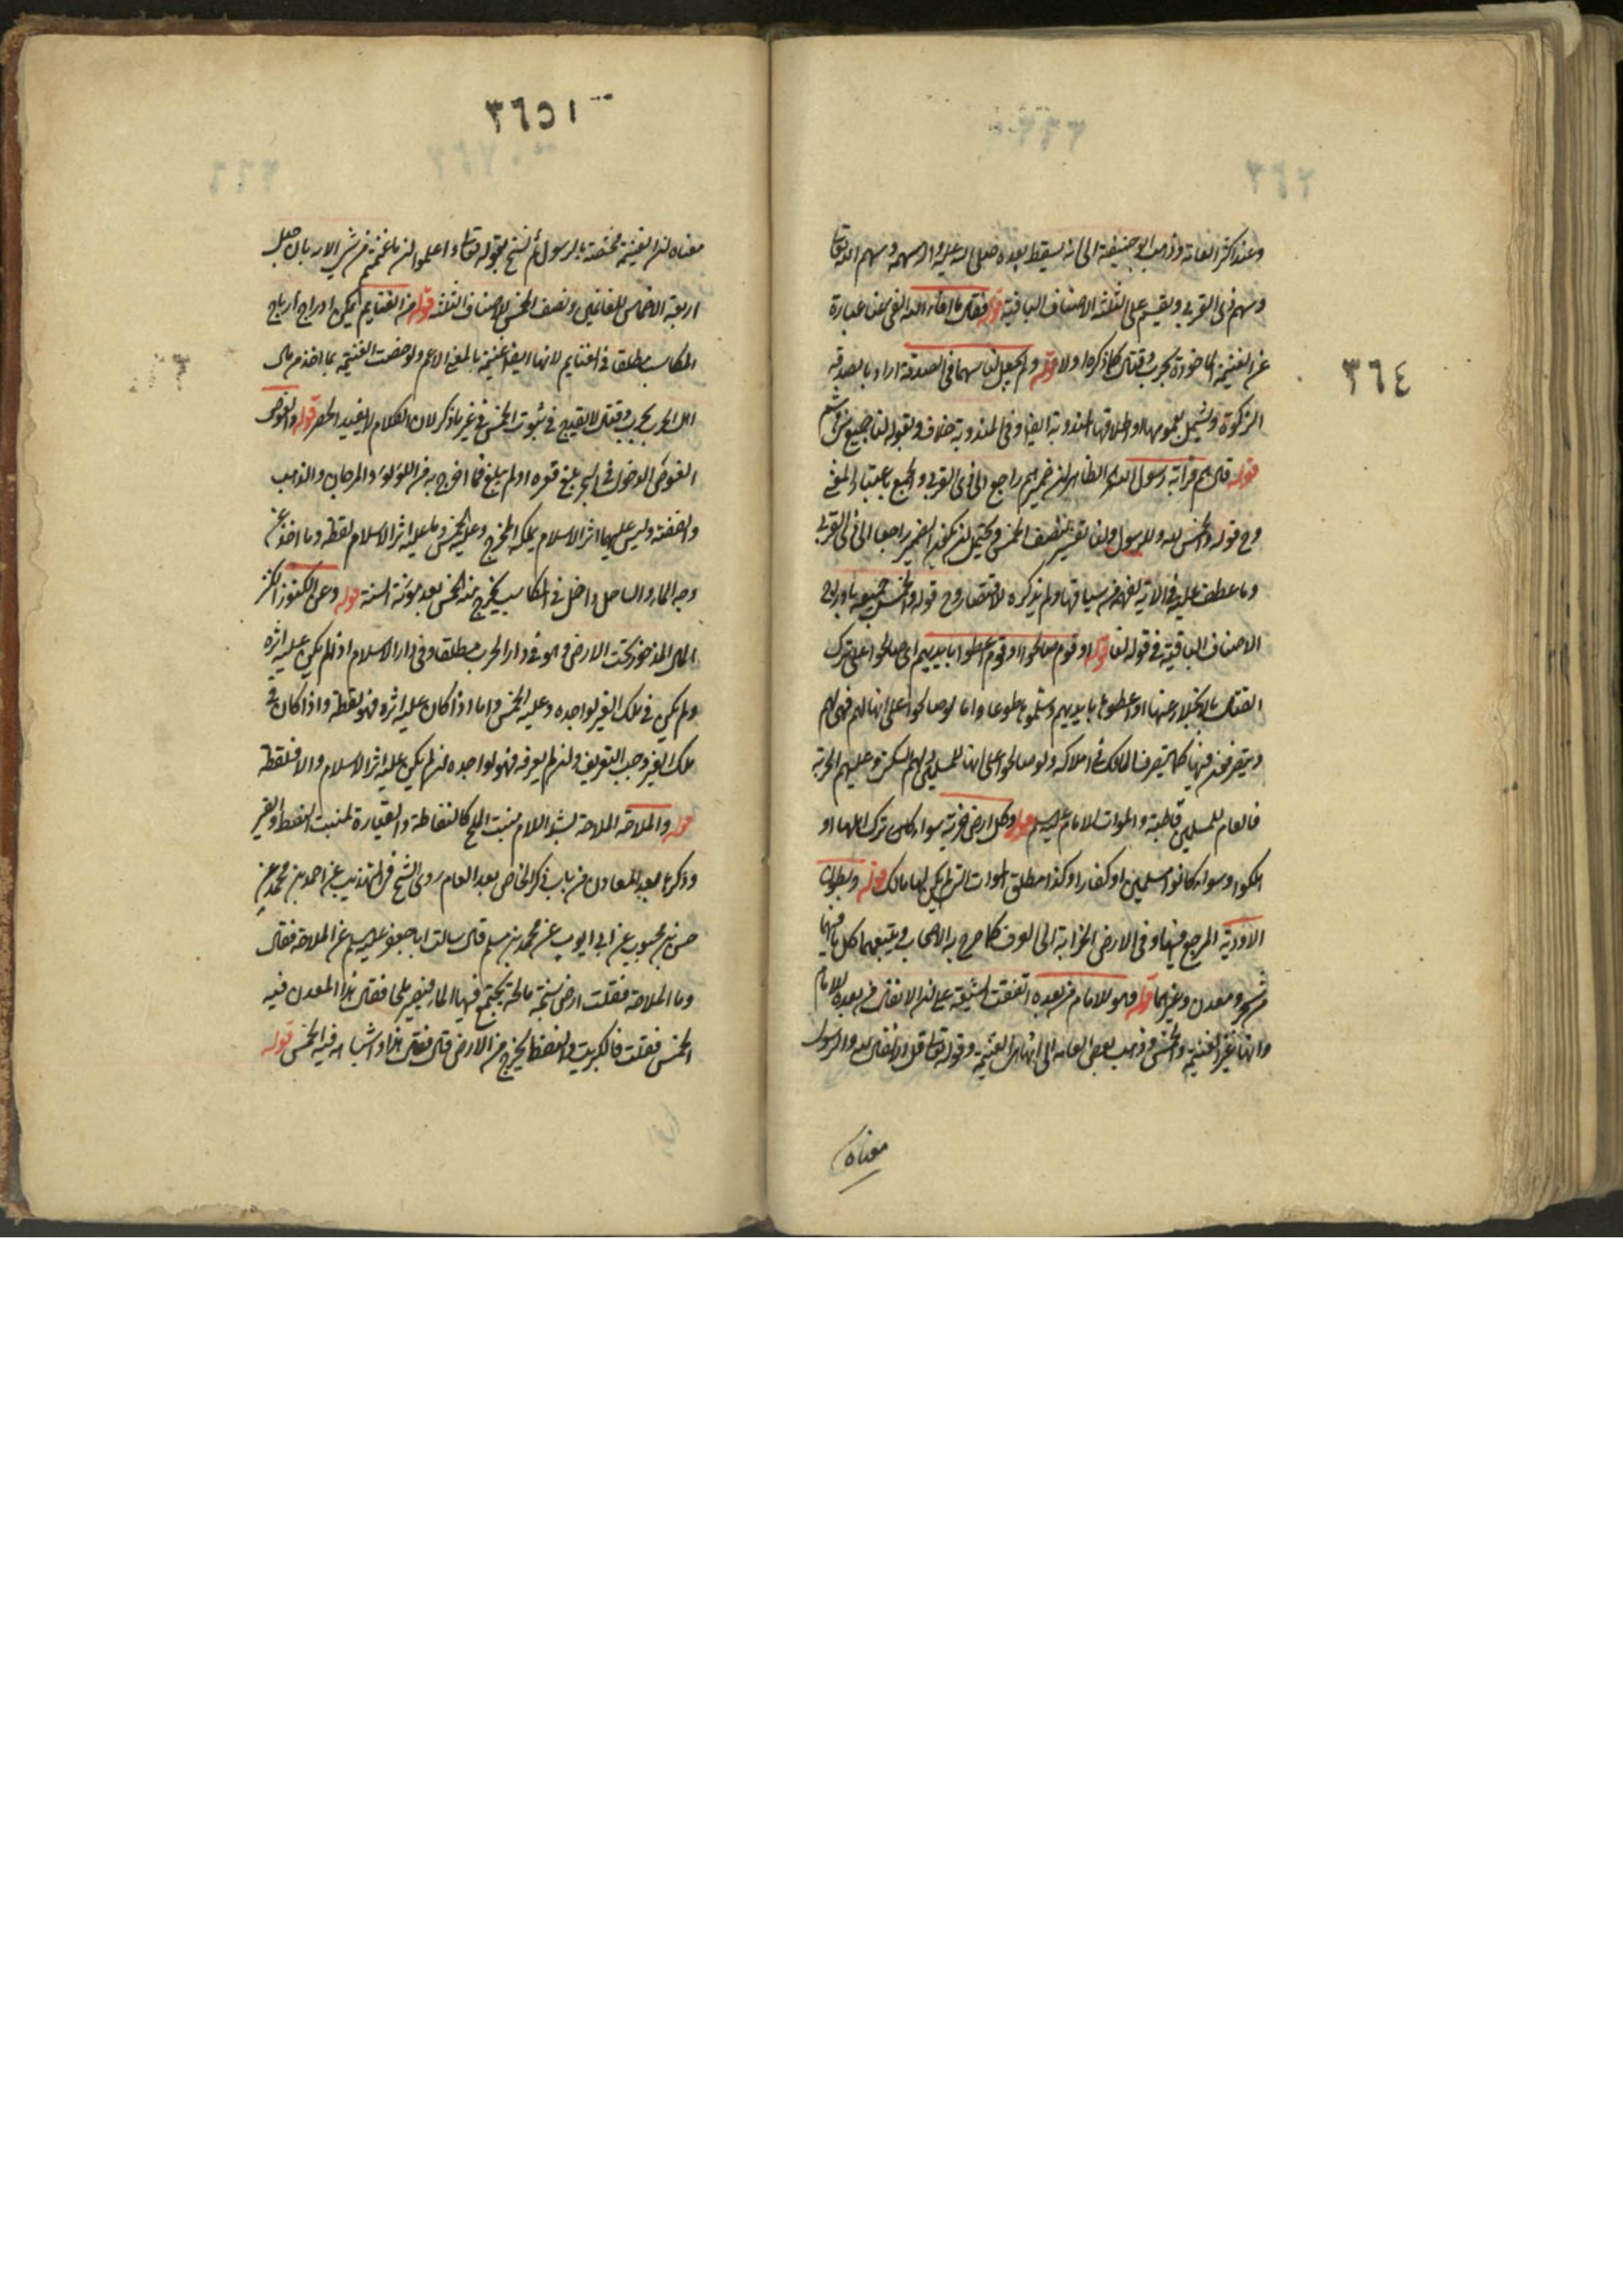 ٣٦٤
وعند اكثر العامة وذهب ابو حنيفة الى انه يسقط بعده صلى الله عليه واله سهمه وسهم الله تعالى
وسهم ذى القربى ويقسم على الثلثة الاصناف الباقية قوله فقال ما افاء الله الفى هنا عبارة
عن الغنيمة الماخوذة بحرب وقتال كما ذكره اولا قوله ولم يجعل لنا سهما فى الصدقة اراد بالصدقة
الزكوة ويشمل بعمومها او اطلاقها المندوبة ايضا وفى المندوبة خلاف وبقوله لنا جميع بنى هاشم
قوله قال هم قرابة رسول الله الظاهر ان ضمير هم راجع الى ذى القربى والجمع باعتبار المعنى
وح قوله والخمس لله وللرسول ولنا تفسير لنصف الخمس ويحتمل ان يكون الضمير راجعا الى ذى القربى
وما عطف عليه فى الاية بقرينة سياقها ولم يذكره للاقتصار وح قوله والخمس جميعه بادراج
الاصناف الباقية فى قوله لنا قوله او قوم صالحوا او قوم اعطوا بايديهم اى صالحوا على ترك
القتال بالانجلاء عنها او اعطوها بايديهم وسلموها طوعا واما لو صالحوا على انها لهم فهى لهم
ويتصرفون فيها كما يتصرف الملاك فى املاكهم ولو صالحوا على انها للمسلمين ولهم السكنى وعليهم الجزية
فالعام للمسلمين قاطبة والموات للامام عليه السلم قوله وكل ارض خربة سواء كان ترك اهلها او
هلكوا وسواء كانوا مسلمين او كفارا وكذا مطلق الموات التى لم يكن لها مالك قوله وبطون
الاودية المرجع فيها وفى الارض الخرابة الى العرف كما صرح به الاصحاب ويتبعهما كل ما فيهما
من شجر ومعدن وغيرهما قوله فهو للامام من بعده اتفقت الشيعة على ان الانفال من بعده للامام
وانها غير الغنيمة والخمس وذهب بعض العامة الى انها هى الغنيمة وقوله تعالى قل الانفال لله والرسول
معناه
٣٦٥١
معناه ان الغنيمة مختصة بالرسول ثم نسخ بقوله تعالى واعلموا ان ما غنمتم من شىء الاية بان جعل
اربعة الاخماس للغانمين ونصف الخمس لاصناف الثلثة قوله من الغنايم يمكن ادراج ارباح
المكاسب مطلقا فى الغنايم لانها ايضا غنيمة بالمعنى الاعم ولو خصت الغنيمة بما اخذ من مال
اهل الحرب بحرب وقتال لا يقدح فى ثبوت الخمس فى غير ما ذكر لان الكلام لا يفيد الحصر قوله والغوص
الغوص الدخول فى البحر بلغ قعره او لم يبلغ فما اخرج به من اللؤلؤ والمرجان والذهب
والفضة وليس عليهما اثر الاسلام يملكه المخرج وعليه الخمس وما عليه اثر الاسلام لقطة وما اخذ من
وجه الماء والساحل داخل فى المكاسب يخرج منه الخمس بعد مؤنة السنة قوله وعن الكنوز الكنز
المال المذخور تحت الارض فهو فى دار الحرب مطلقا وفى دار الاسلام اذا لم يكن عليه اثره
ولم يكن فى ملك الغير لواجده وعليه الخمس واما اذا كان عليه اثره فهو لقطة واذا كان فى
ملك الغير وجب التعريف وان لم يعرفه فهو لواجده ان لم يكن عليه اثر الاسلام والا فلقطة
قوله والملاحة الملاحة بشد اللام منبت الملح كالنفاطة والقيارة لمنبت النفط والقير
وذكرها بعد المعادن من باب ذكر الخاص بعد العام روى الشيخ فى التهذيب عن احمد بن محمد عن
حسن بن محبوب عن ابى ايوب عن محمد بن مسلم قال سالت ابا جعفر عليه السلم عن الملاحة فقال
وما الملاحة فقلت ارض سبخة مالحة يجتمع فيها الماء فيصير ملحا فقال هذا المعدن فيه
الخمس فقلت فالكبريت والنفط يخرج من الارض قال فقال هذا واشباهه فيه الخمس قوله